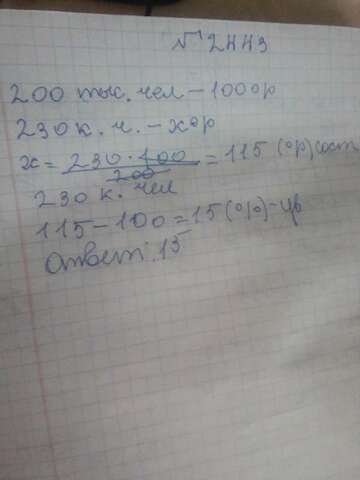 № 2443
200 тыс. чел – 100%
230 к. ч. – х%
х = 230 · 100 / 200 = 115 (%) сост
230 к. чел
115 – 100 = 15 (%) –
Ответ: 15